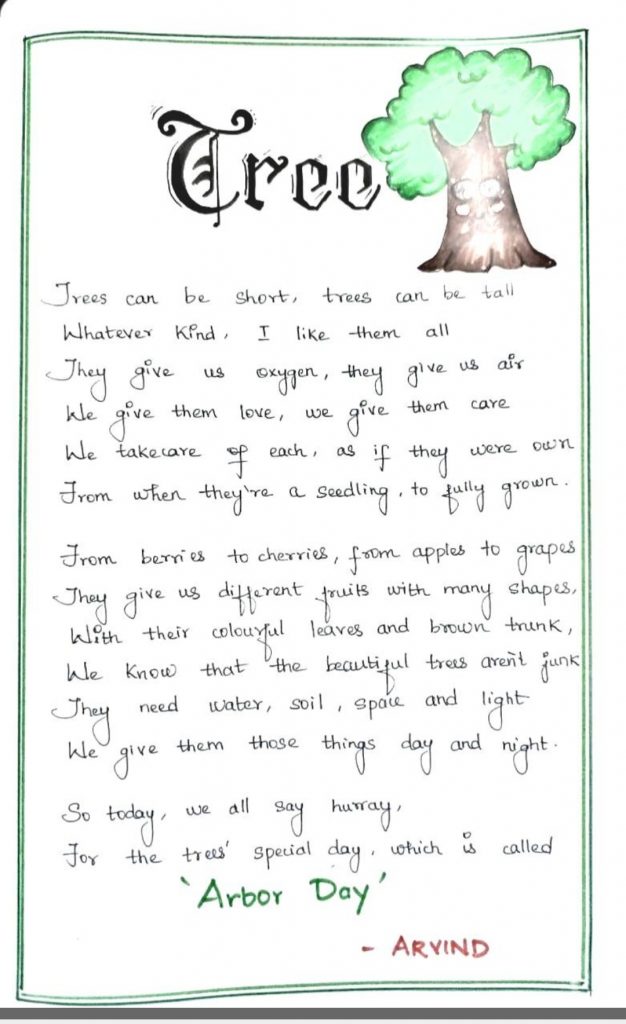 Tree
Trees can be short, trees can be tall
Whatever Kind, I like them all
They give us oxygen, they give us air
We give them love, we give them care
We takecare of each, as if they were own
From when they're a seedling, to fully grown.
From berries to cherries, from apples to grapes
They give us different fruits with many shapes,
With their colourful leaves and brown trunk,
We know that the beautiful trees aren't junk
They need water, soil, space and light
We give them those things day and night.
So today, we all say hurray,
For the trees' special day, which is called
'Arbor Day'
- ARVIND